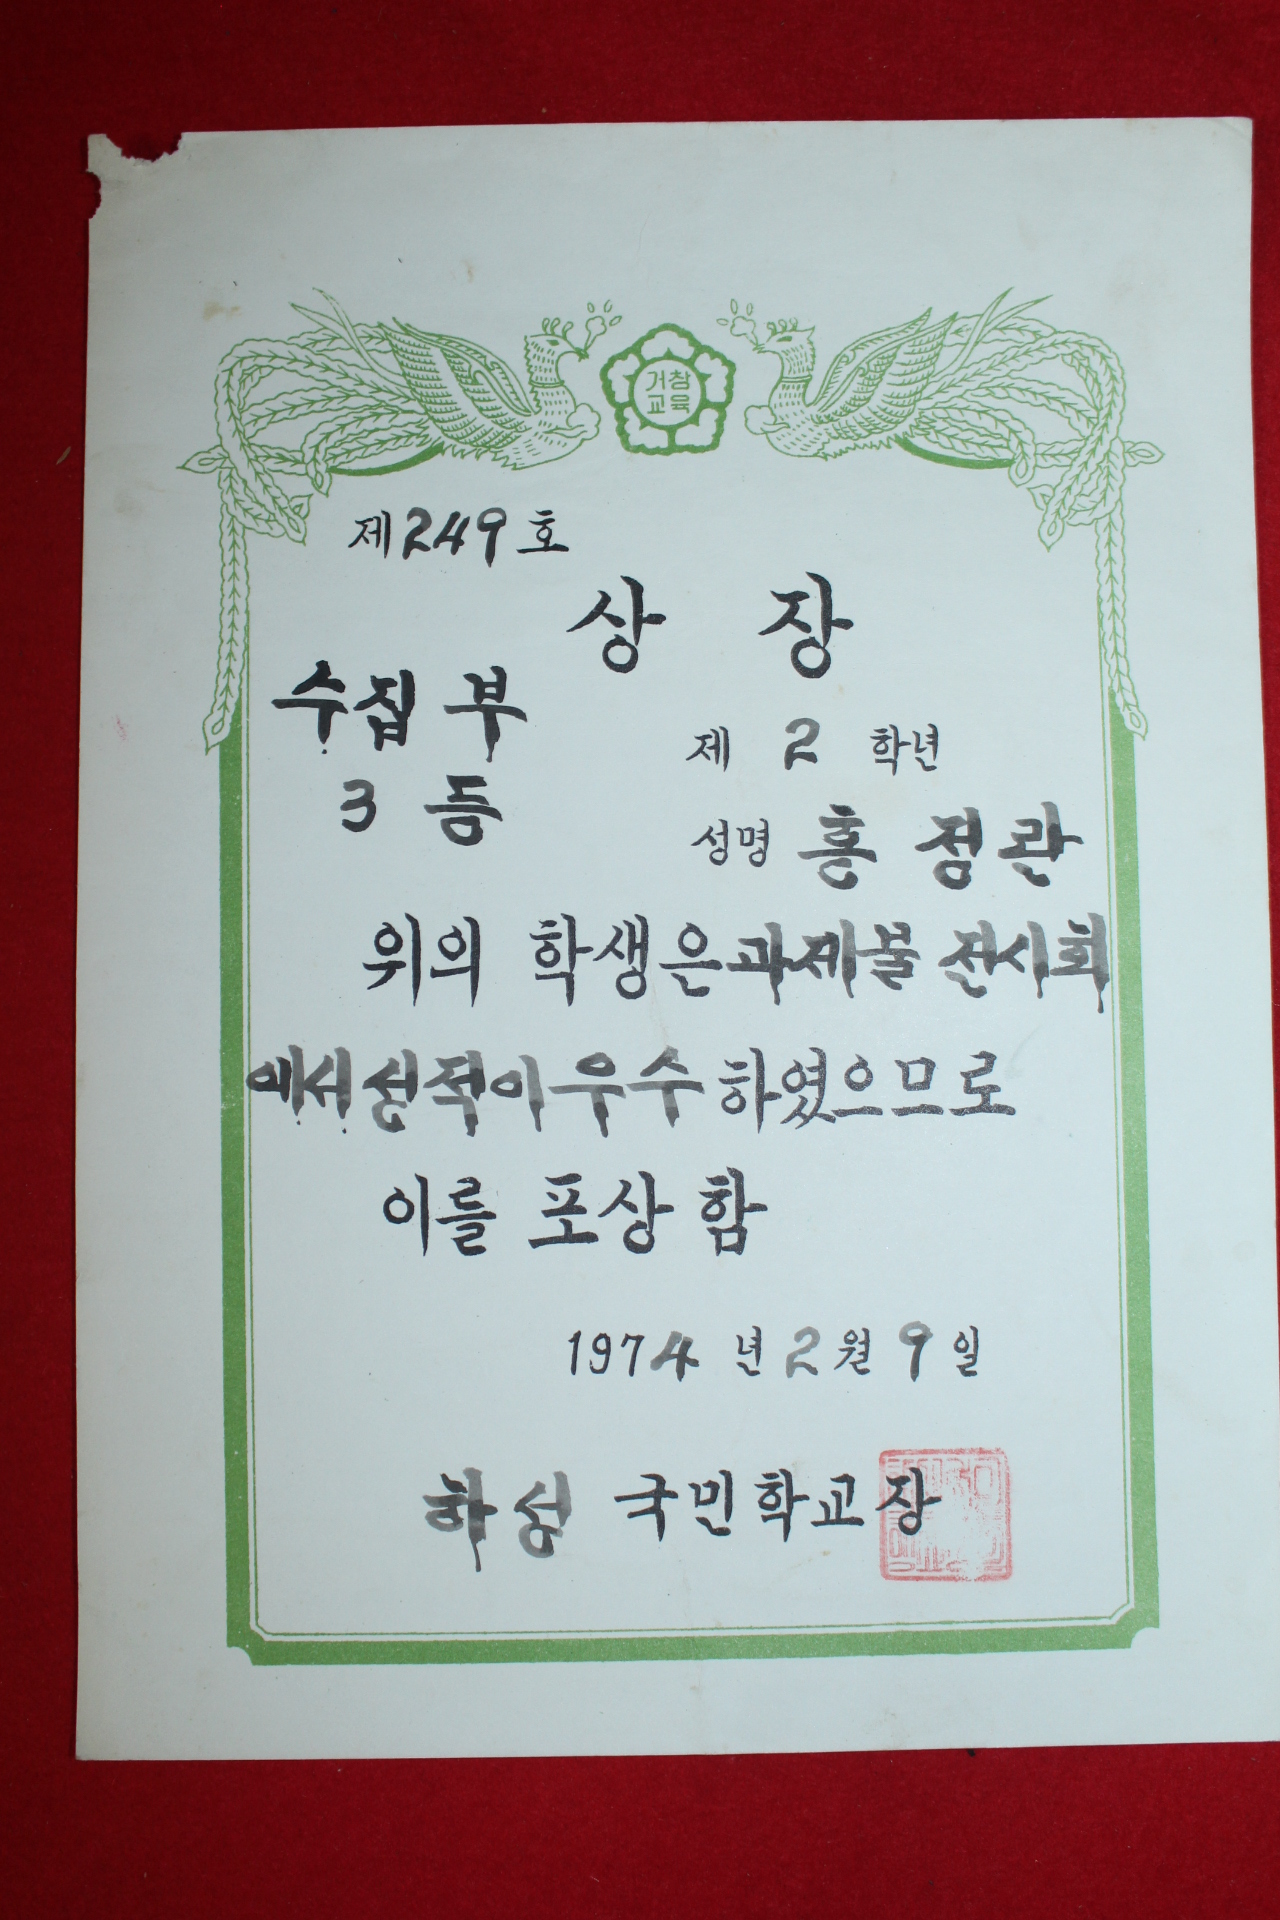 거창
교육
제249호
상 장
수집부
3 등
제 2 학년
성명 홍 정관
위의 학생은 과제물 전시회
에서 성적이 우수 하였으므로
이를 포상 함
1974 년 2 월 9 일
하성 국민학교장